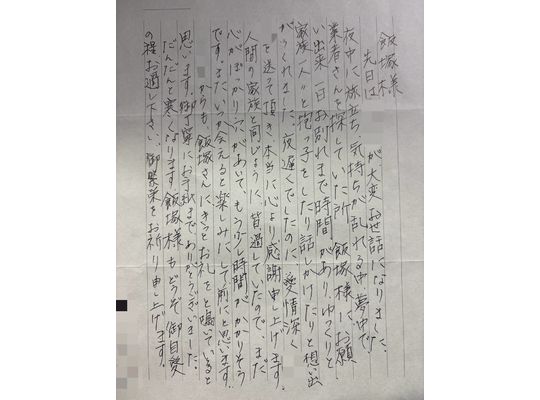 飯塚様
先日は が大変お世話になりました。
夜中に旅立ち気持ちが乱れる中夢中で
業者さんを探していた所、飯塚様にお願
い出来、一日お別れまで時間があり、ゆっくりと
家族一人一人抱っ子をしたり話しかけたりと想い出
がつくれました。夜遅くでしたのに、愛情深く
を送って頂き本当に心より感謝申し上げます。
人間の家族と同じように、皆過していたので、まだ
心がぽっかり穴があいて、もう少し時間がかかりそう
です。またいつか会えると楽しみに 前にと思います。
からも飯塚さんにきっとお礼をと鳴いていると
思います。御丁寧にお手紙までありがとうございました。
だんだんと寒くなります。飯塚様もどうぞ御自愛
の程お過し下さい。御繁栄をお祈り申し上げます。